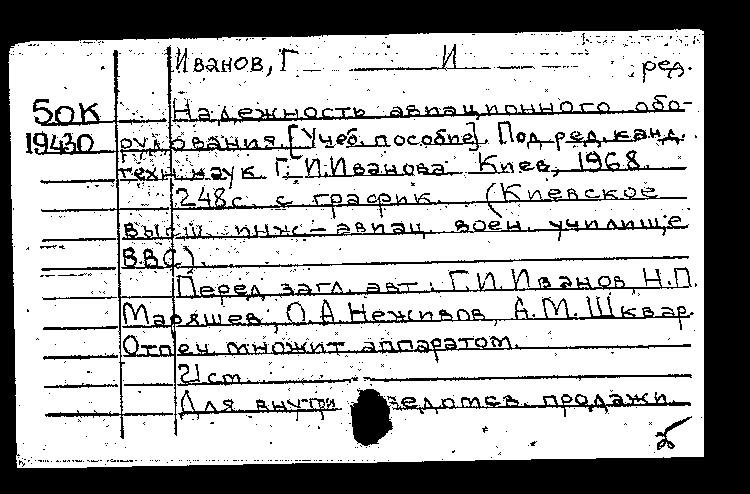 Иванов, Г И
, ред.
50К Надежность авиационного обо-
19430 рудования. [Учеб. пособие]. Под ред. канд.
техн. наук Г. И. Иванова. Киев, 1968.
248 с. с график. (Киевское
высш. инж-авиац. воен. училище
ВВС).
Перед загл. авт.: Г.И. Иванов, Н.П.
Маряшев, О.А. Неживов, А.М. Шквар.
Отпеч. множит аппаратом.
21 cm.
Для внутриведомств. продажи.